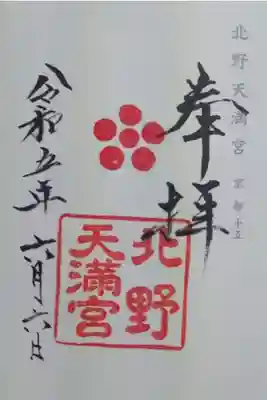 北野天満宮
奉拝
北野
天満宮
令和五年 六月六日